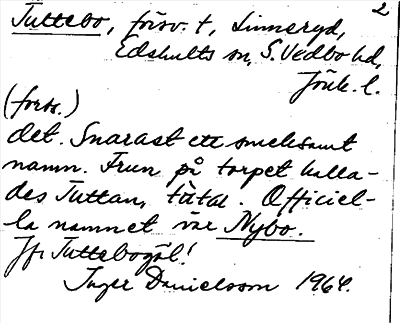 2
Tuttebo, försv. t, Linneryd,
Edshults sn, S. Vedbo hd,
Jönk. l.
(forts.)
det. Snarast ett smeksamt
namn. Frun på torpet kalla-
des Tuttan, Officiel-
la namnet var Nybo.
Jfr Tuttebogöl!
Inger Danielsson 1964.